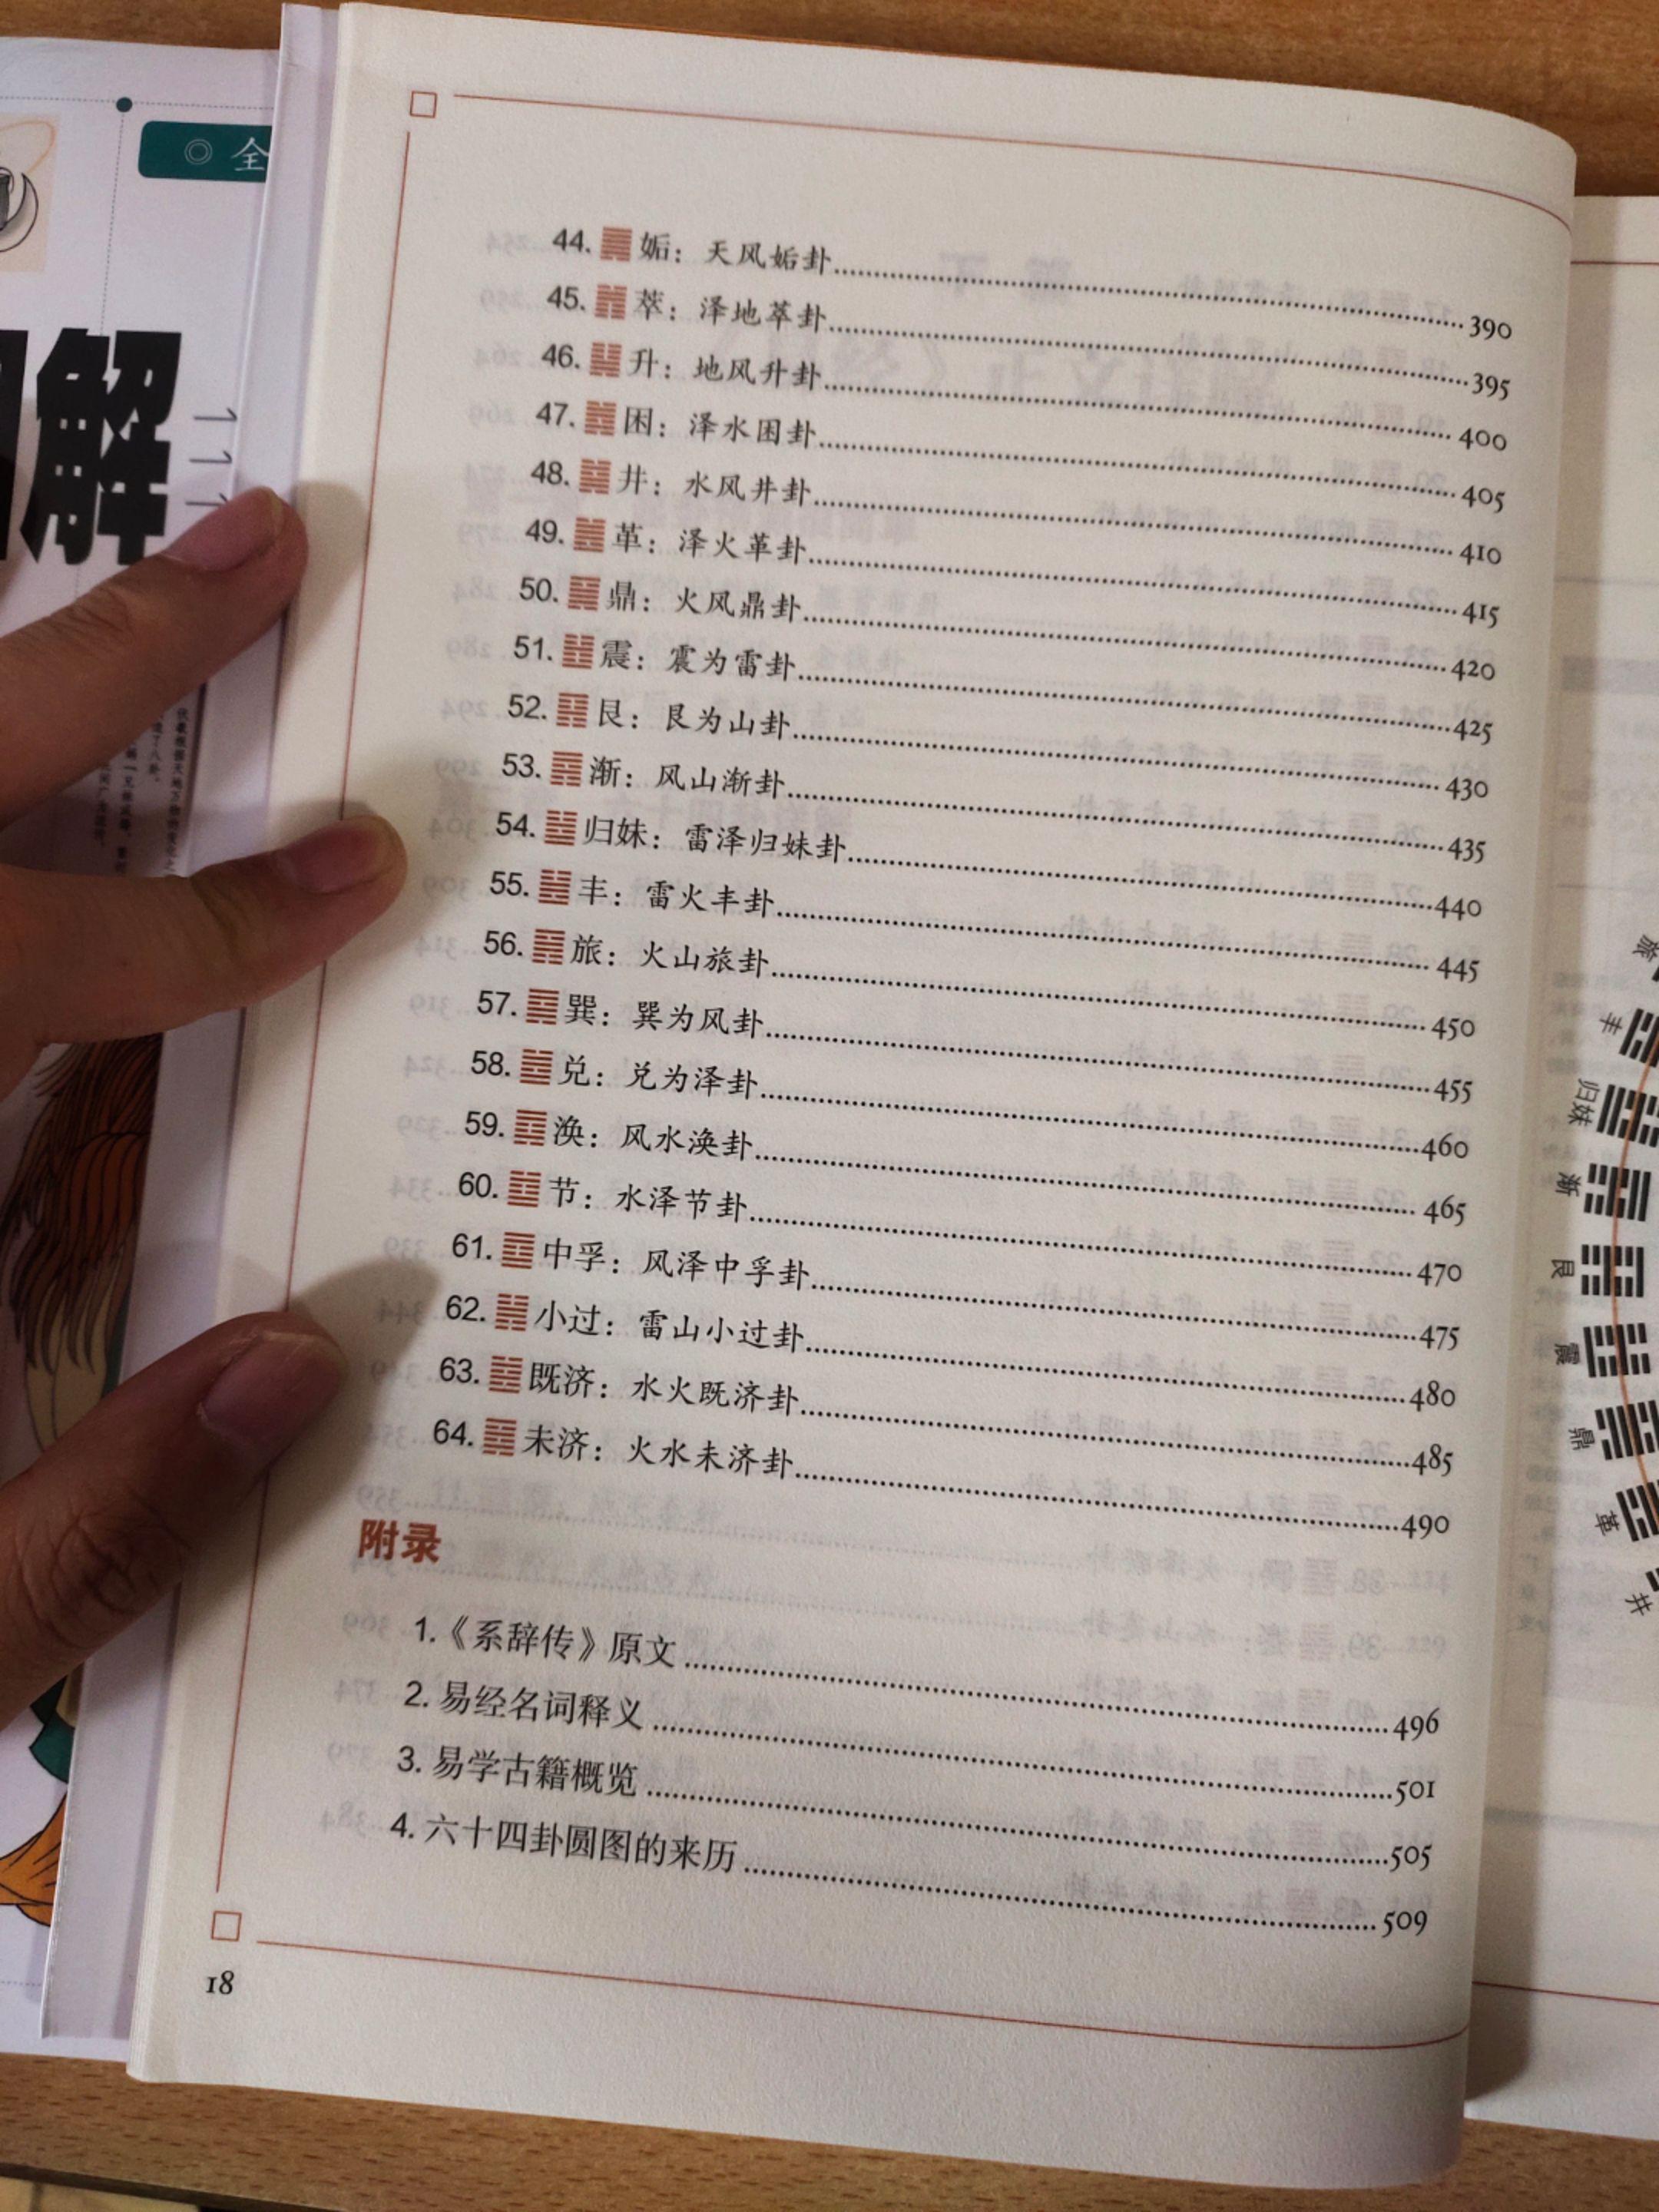 全
解
44. ䷫ 姤：天风姤卦……390
45. ䷬ 萃：泽地萃卦……395
46. ䷭ 升：地风升卦……400
47. ䷮ 困：泽水困卦……405
48. ䷯ 井：水风井卦……410
49. ䷰ 革：泽火革卦……415
50. ䷱ 鼎：火风鼎卦……420
51. ䷲ 震：震为雷卦……425
52. ䷳ 艮：艮为山卦……430
53. ䷴ 渐：风山渐卦……435
54. ䷵ 归妹：雷泽归妹卦……440
55. ䷶ 丰：雷火丰卦……445
56. ䷷ 旅：火山旅卦……450
57. ䷸ 巽：巽为风卦……455
58. ䷹ 兑：兑为泽卦……460
59. ䷺ 涣：风水涣卦……465
60. ䷻ 节：水泽节卦……470
61. ䷼ 中孚：风泽中孚卦……475
62. ䷽ 小过：雷山小过卦……480
63. ䷾ 既济：水火既济卦……485
64. ䷿ 未济：火水未济卦……490
附录
1.《系辞传》原文……496
2. 易经名词释义……501
3. 易学古籍概览……505
4. 六十四卦圆图的来历……509
18
旅
丰
归妹
渐
艮
震
鼎
革
井